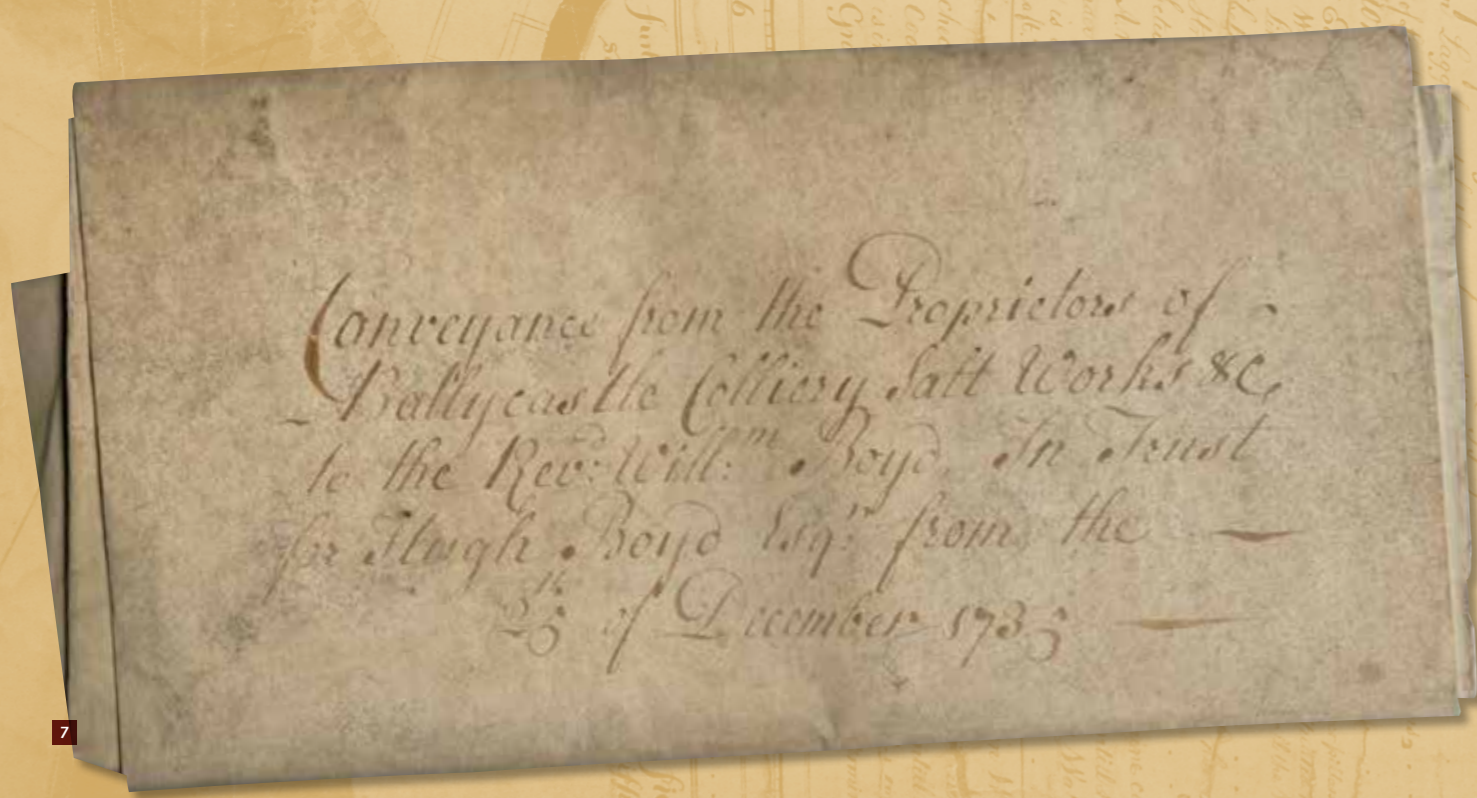 Conveyance from the Proprietors of
Ballycastle Colliery Salt Works &c,
to the Revd: Willm: Boyd. In Trust
for Hugh Boyd Esqr: from the
of December 173
7